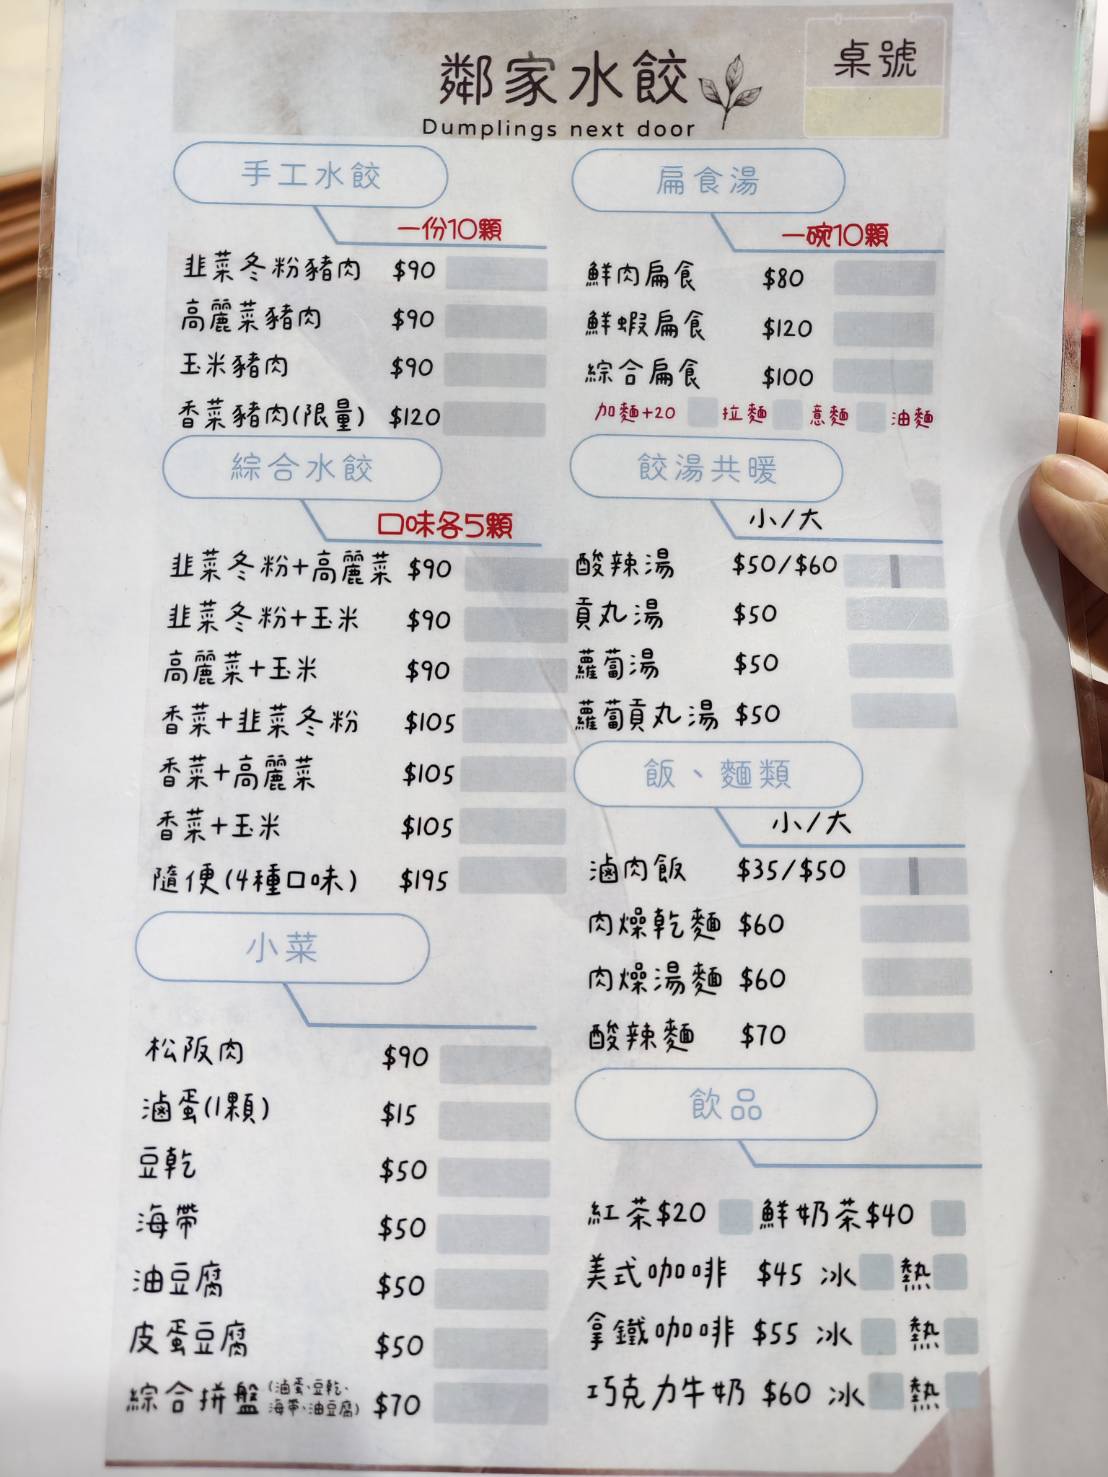 鄰家水餃
Dumplings next door
桌號
手工水餃
一份10顆
韭菜冬粉豬肉 $90
高麗菜豬肉 $90
玉米豬肉 $90
香菜豬肉(限量) $120
綜合水餃
口味各5顆
韭菜冬粉+高麗菜 $90
韭菜冬粉+玉米 $90
高麗菜+玉米 $90
香菜+韭菜冬粉 $105
香菜+高麗菜 $105
香菜+玉米 $105
隨便(4種口味) $195
小菜
松阪肉 $90
滷蛋(1顆) $15
豆乾 $50
海帶 $50
油豆腐 $50
皮蛋豆腐 $50
綜合拼盤(滷蛋、豆乾、海帶、油豆腐) $70
扁食湯
一碗10顆
鮮肉扁食 $80
鮮蝦扁食 $120
綜合扁食 $100
加麵+20 拉麵 意麵 油麵
餃湯共暖
小/大
酸辣湯 $50/$60
貢丸湯 $50
蘿蔔湯 $50
蘿蔔貢丸湯 $50
飯、麵類
小/大
滷肉飯 $35/$50
肉燥乾麵 $60
肉燥湯麵 $60
酸辣麵 $70
飲品
紅茶$20 鮮奶茶$40
美式咖啡 $45 冰 熱
拿鐵咖啡 $55 冰 熱
巧克力牛奶 $60 冰 熱